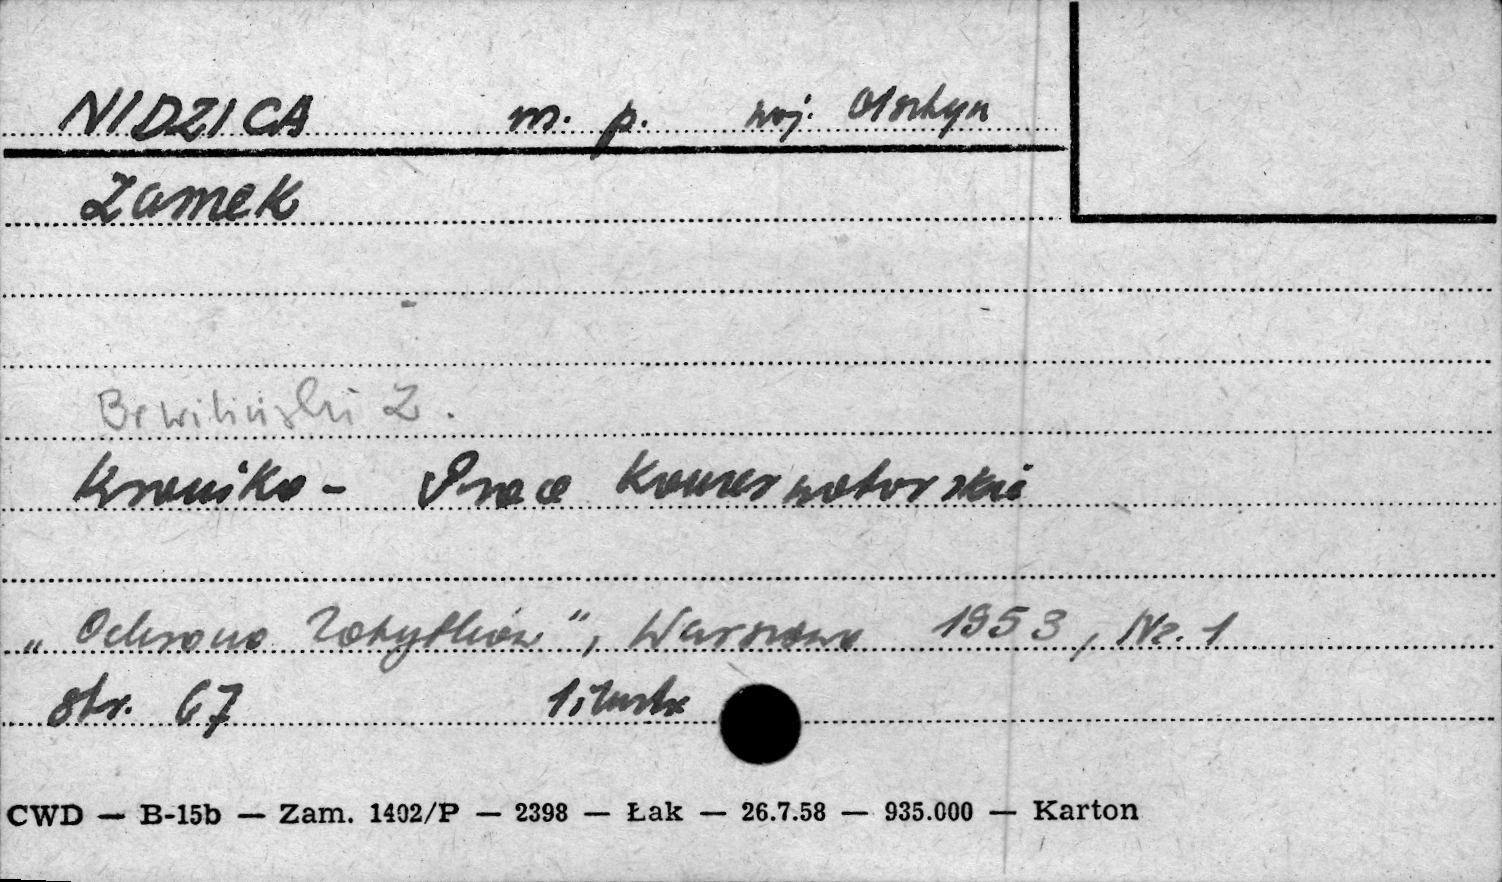 NIDZICA m. p. woj. Olsztyn
Zamek
Z.
Kronika - Prace Konserwatorskie
„Ochrona Zabytków”, Warszawa 1953, Nr. 1
str. 67 1 ilustr
CWD — B-15b — Zam. 1402/P — 2398 — Łak — 26.7.58 — 935.000 — Karton